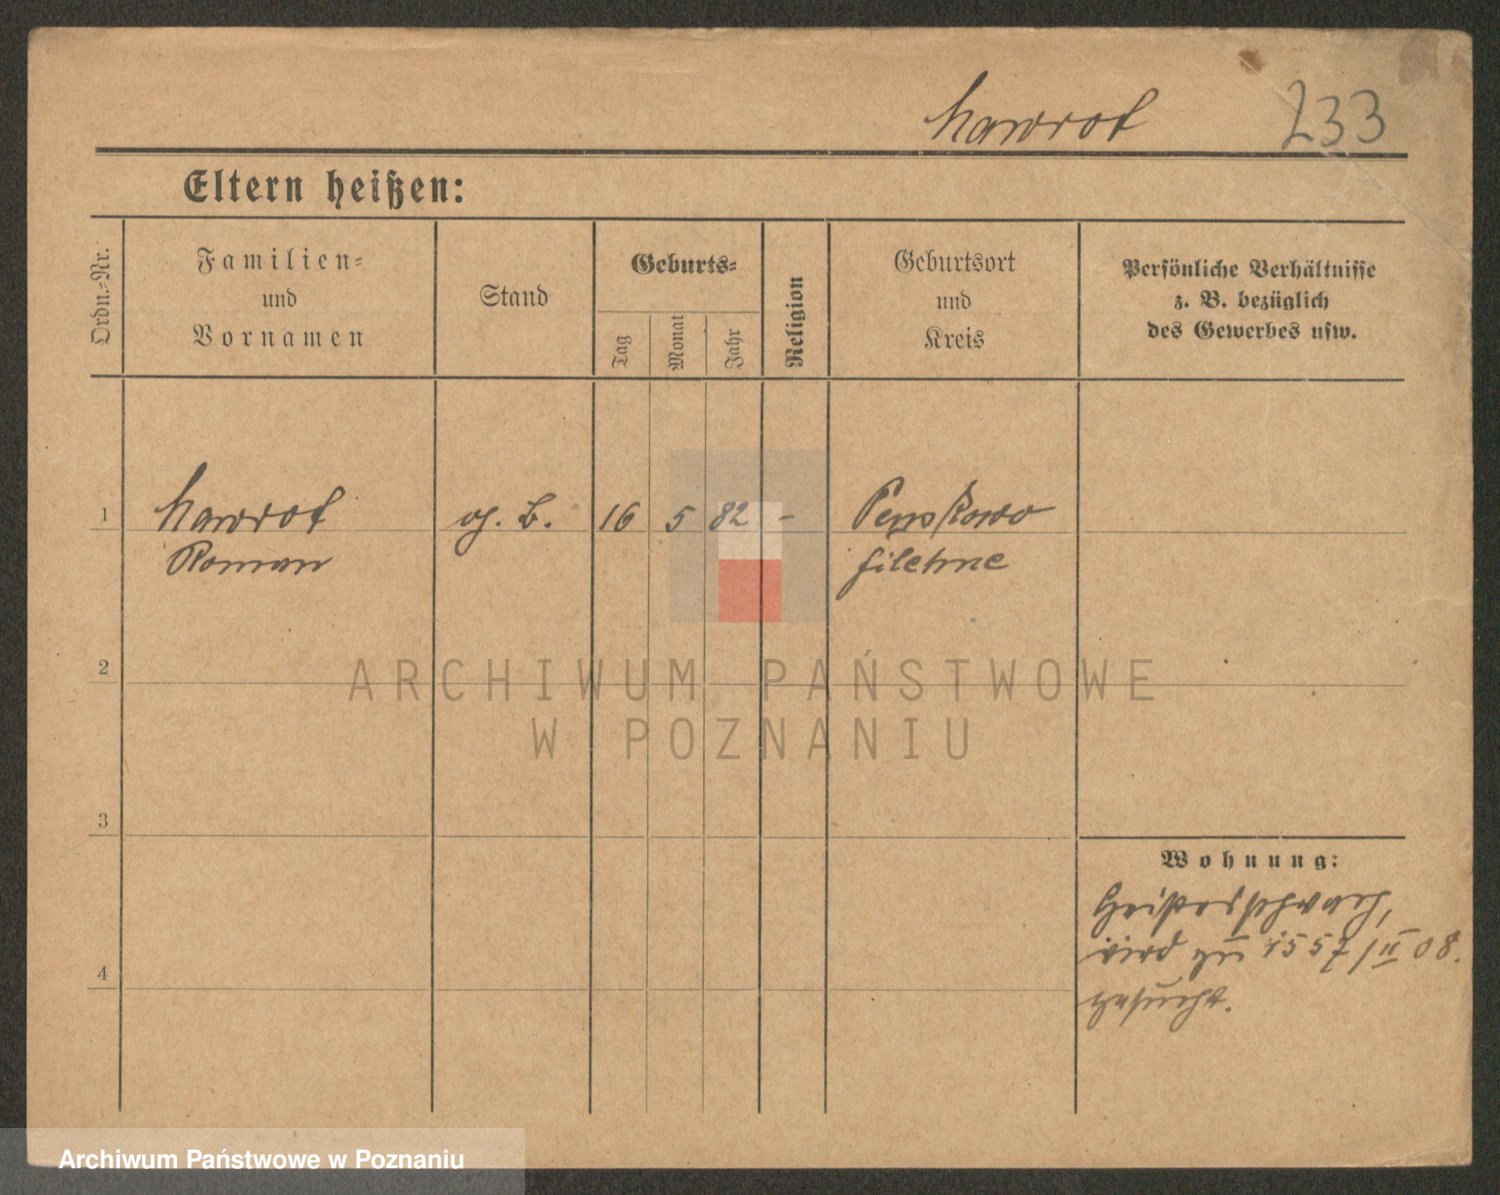 Nawrot 233
Eltern heißen:
Ordn.-Nr.
Familien-
und
Vornamen
Stand
Geburts-
Tag
Monat
Jahr
Religion
Geburtsort
und
Kreis
Persönliche Verhältnisse
z. B. bezüglich
des Gewerbes usw.
1 Nawrot B. 16 5 82 - Pepskowo
Roman Filehne
2
3
4
Wohnung:
wird zu 1557/II 08.
gesucht.
ARCHIWUM PAŃSTWOWE
W POZNANIU
Archiwum Państwowe w Poznaniu